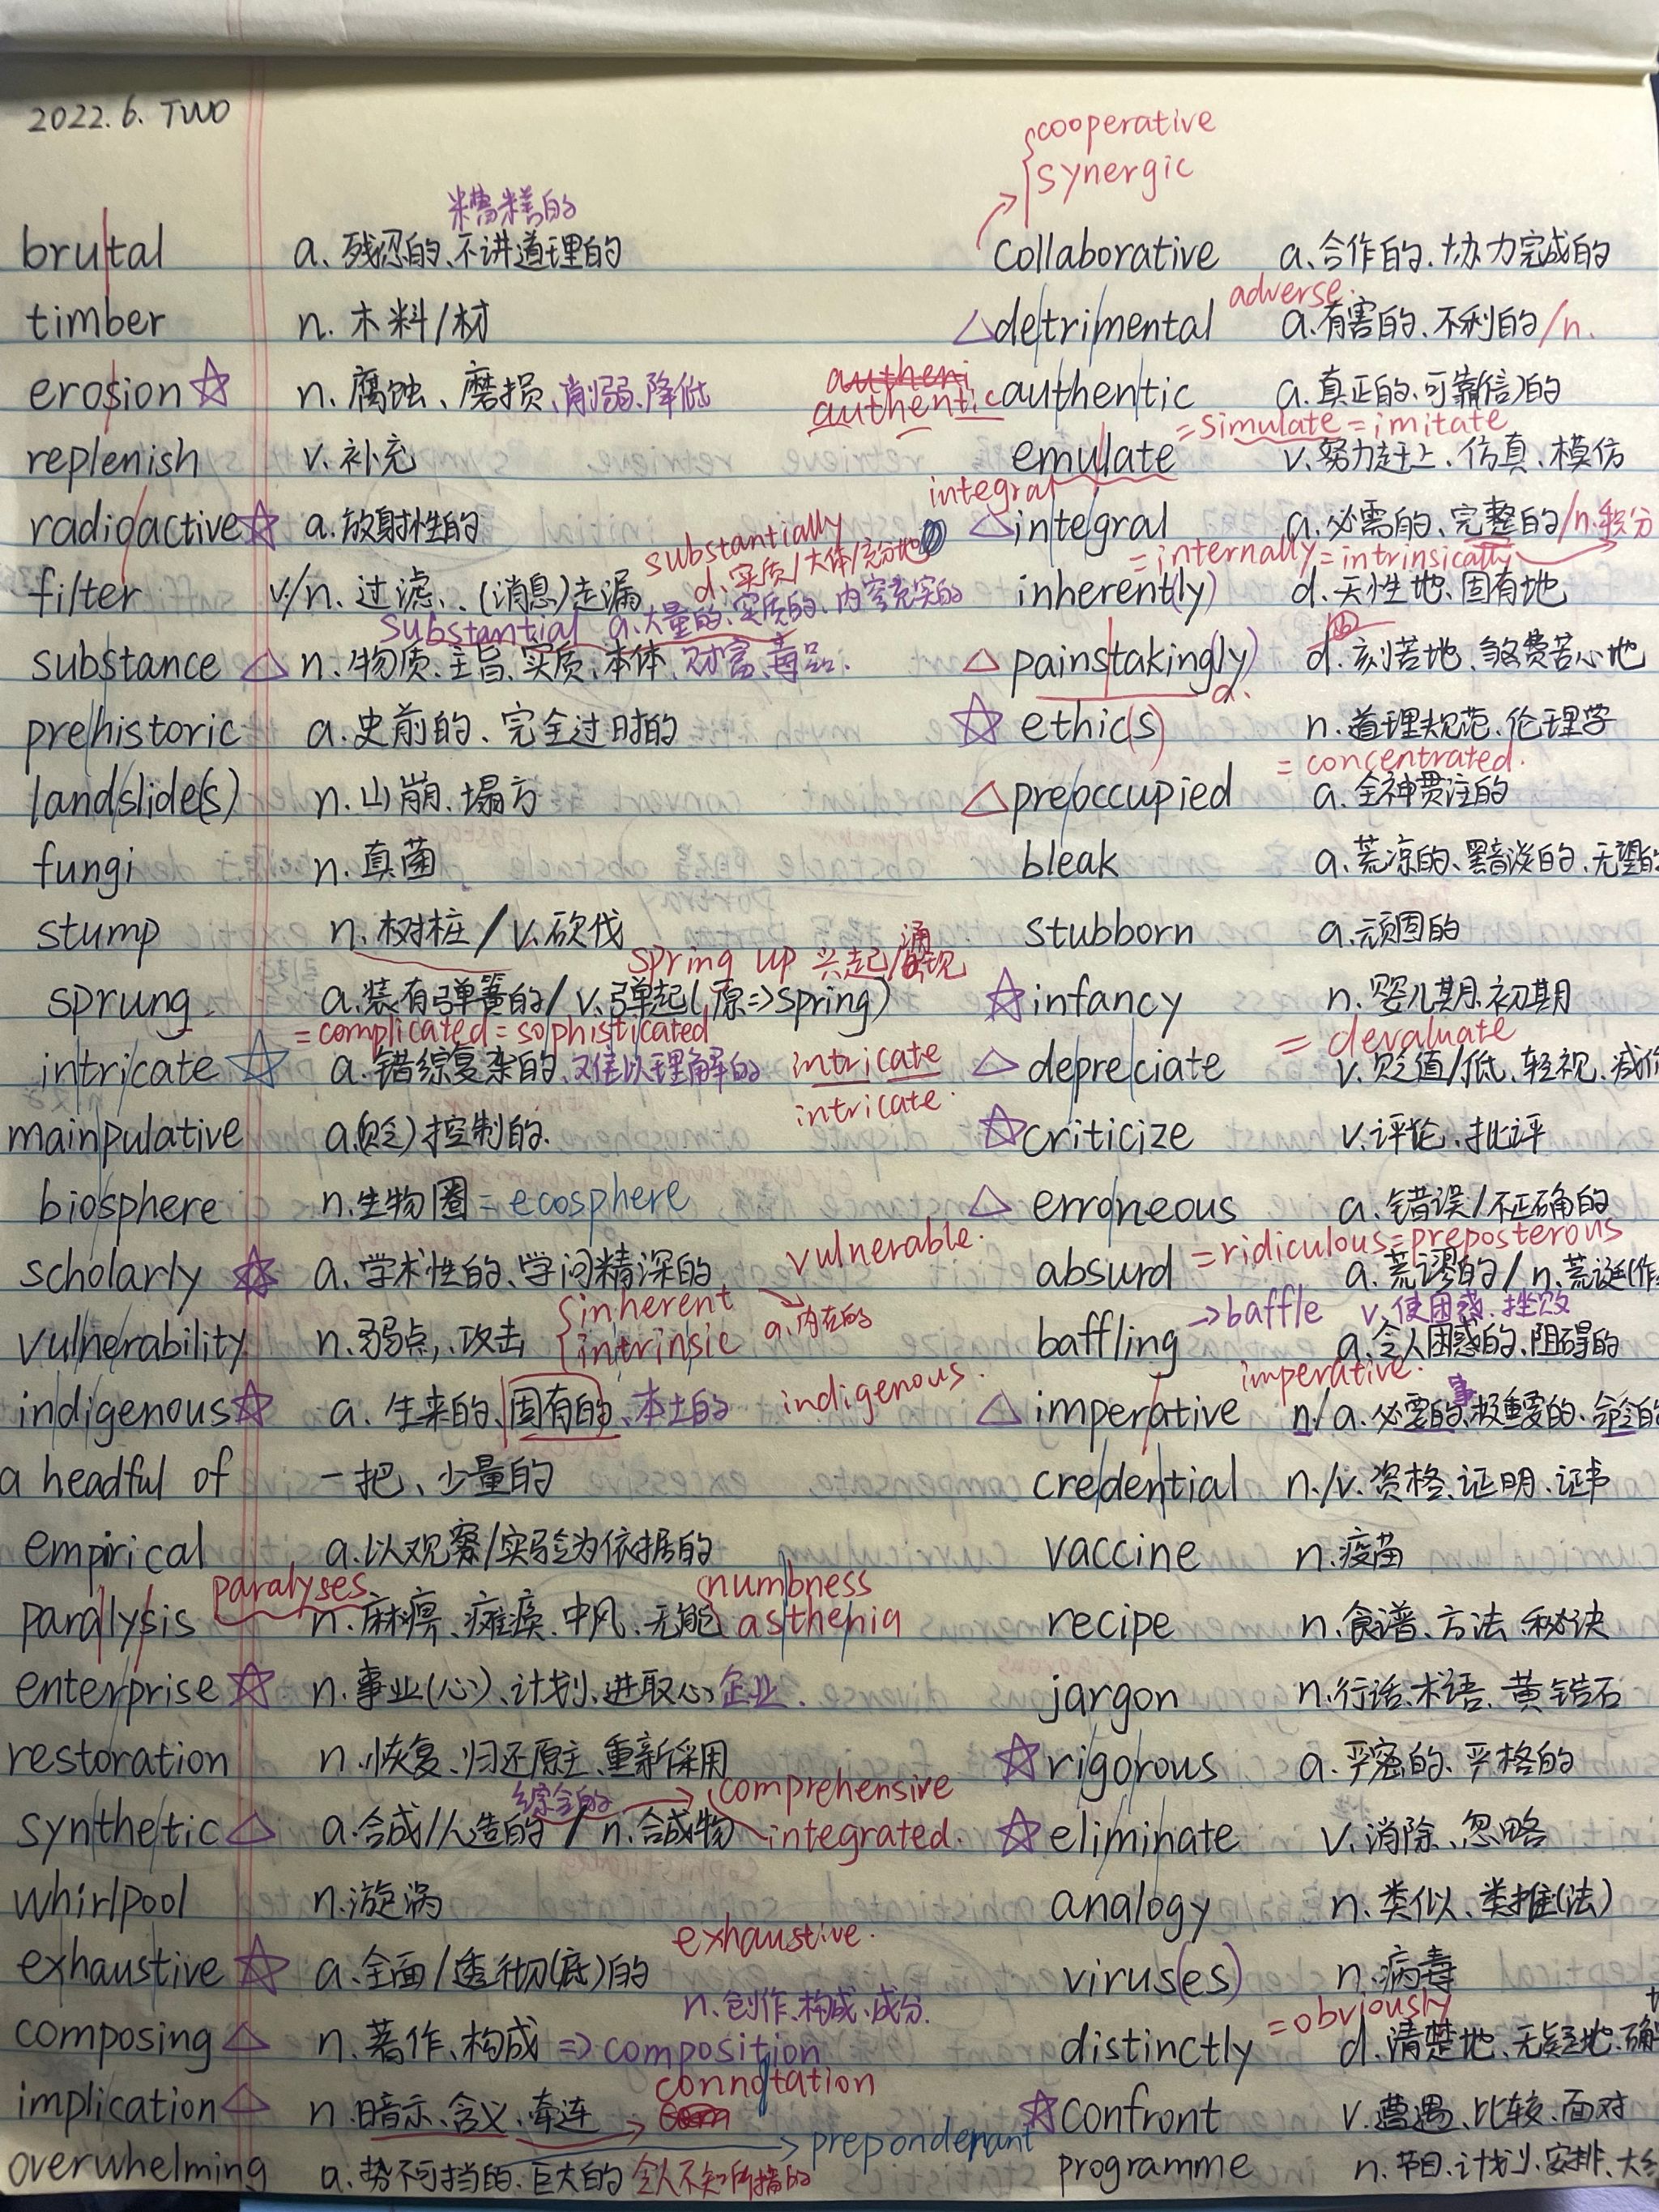 2022.6. TWO
cooperative
synergic
糟糕的
brutal a. 残忍的、不讲道理的
collaborative a. 合作的、协力完成的
adverse.
timber n. 木料/材
△detrimental a. 有害的、不利的/n.
erosion☆ n. 腐蚀、磨损、削弱、降低
authentic authentic a. 真正的、可靠(信)的
= simulate = imitate
replenish v. 补充
emulate v. 努力赶上、仿真、模仿
integral
radioactive☆ a. 放射性的
△integral a. 必需的、完整的/n. 积分
substantially
d. 实质/大体/充分地
= internally = intrinsically
filter v./n. 过滤、(消息)走漏
inherent(ly) d. 天性地、固有地
substantial a. 大量的、实质的、内容充实的
substance△ n. 物质、主旨、实质、本体、财富、毒品.
△painstaking(ly) d. 刻苦地、费苦心地
d.
prehistoric a. 史前的、完全过时的
☆ethic(s) n. 道理规范、伦理学
= concentrated.
landslide(s) n. 山崩、塌方
△preoccupied a. 全神贯注的
fungi n. 真菌
bleak a. 荒凉的、黯淡的、无望的
stump n. 树桩/v. 砍伐
stubborn a. 顽固的
spring up 兴起/涌现
sprung a. 装有弹簧的/v. 弹起(原=>spring)
☆infancy n. 婴儿期、初期
= complicated = sophisticated
= devaluate
intricate☆ a. 错综复杂的、难以理解的 intricate
△depreciate v. 贬值/低、轻视、减价
intricate.
mainpulative a.(贬)控制的.
☆criticize v. 评论、批评
biosphere n. 生物圈 = ecosphere
△erroneous a. 错误/不正确的
vulnerable.
= ridiculous = preposterous
scholarly☆ a. 学术性的、学问精深的
absurd a. 荒谬的/n. 荒诞(作
inherent
intrinsic → a. 内在的
→baffle v. 使困惑、挫败
vulnerability n. 弱点, 攻击
baffling a. 令人困惑的、阻碍的
imperative.
indigenous☆ a. 生来的、固有的、本土的 indigenous.
△imperative n/a. 必要的事、极重要的、命令的
a headful of 一把、少量的
credential n./v. 资格、证明、证书
empirical a. 以观察/实验为依据的
vaccine n. 疫苗
paralyses
numbness
paralysis n. 麻痹、瘫痪、中风、无能 asthenia
recipe n. 食谱、方法、秘诀
enterprise☆ n. 事业(心)、计划、进取心、企业.
jargon n. 行话、术语、黄锆石
restoration n. 恢复、归还原主、重新采用
☆rigorous a. 严密的、严格的
综合的 → comprehensive
synthetic△ a. 合成/人造的/n. 合成物 integrated.
☆eliminate v. 消除、忽略
whirlpool n. 漩涡
analogy n. 类似、类推(法)
exhaustive.
exhaustive☆ a. 全面/透彻(底)的
virus(es) n. 病毒
n. 创作、构成、成分.
= obviously
composing△ n. 著作、构成 => composition
distinctly d. 清楚地、无疑地、确
connotation
implication△ n. 暗示、含义、牵连 →
☆confront v. 遭遇、比较、面对
→ preponderant
overwhelming a. 势不可挡的、巨大的 令人不知所措的
programme n. 节目、计划、安排、大纲